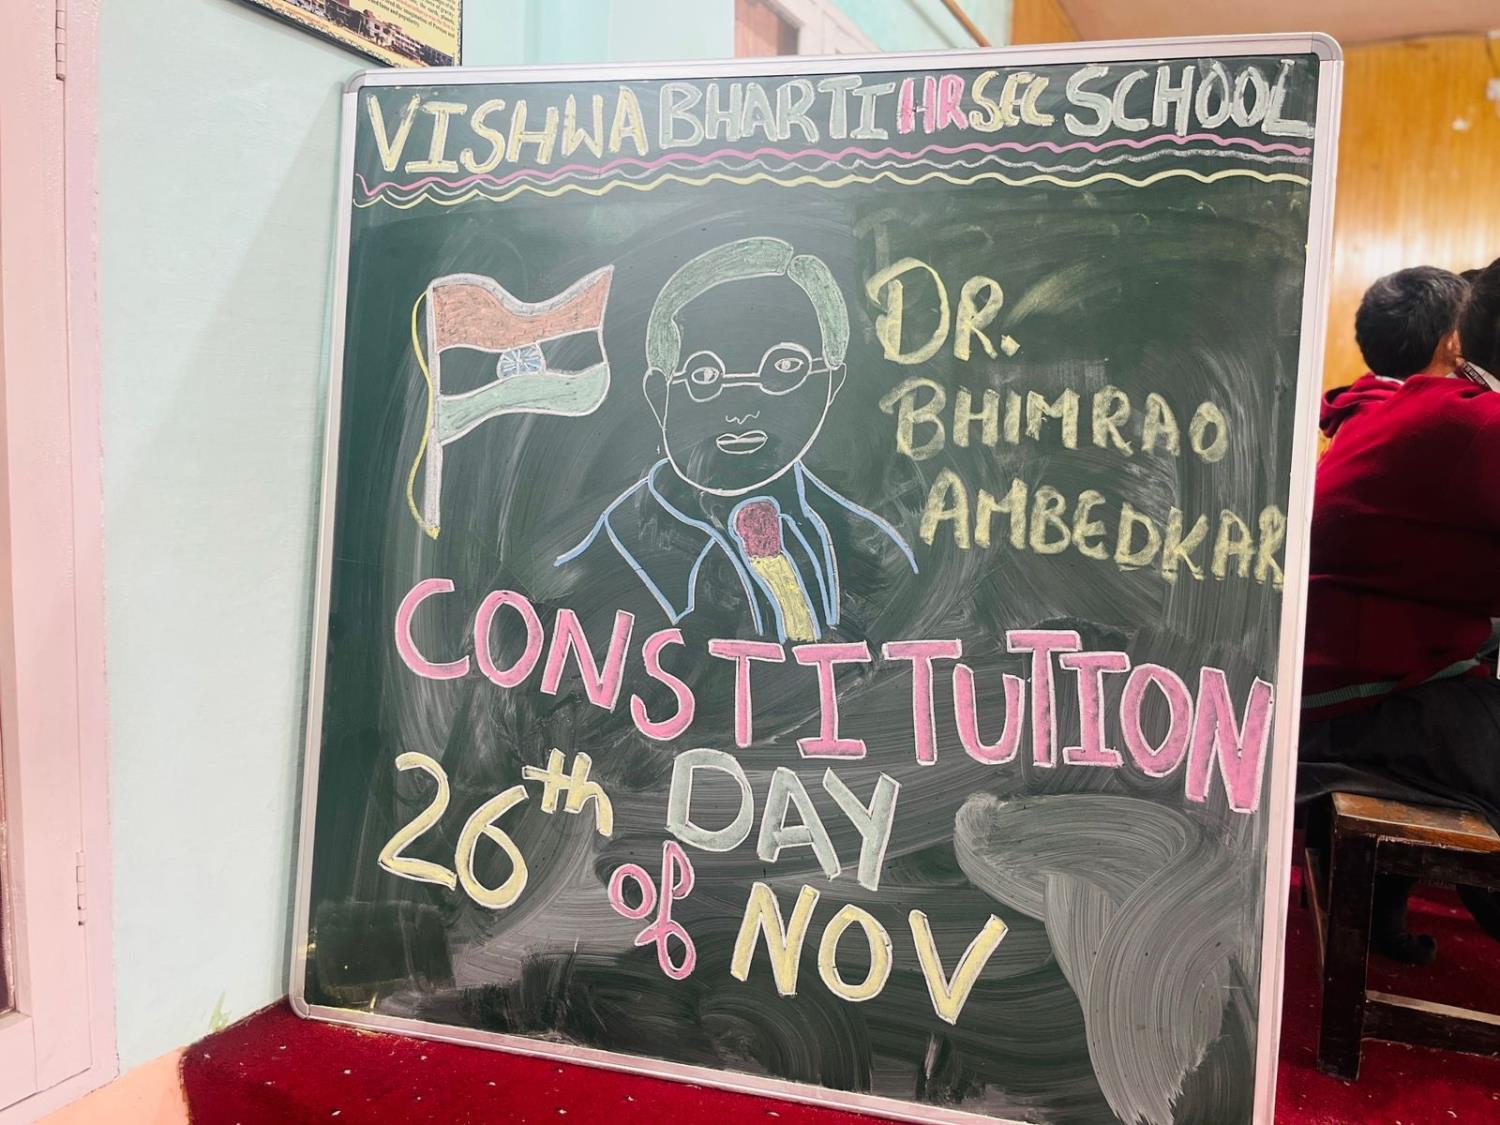 VISHWA BHARTI HR SEC SCHOOL
DR.
BHIMRAO
AMBEDKAR
CONSTITUTION
DAY
26th of NOV